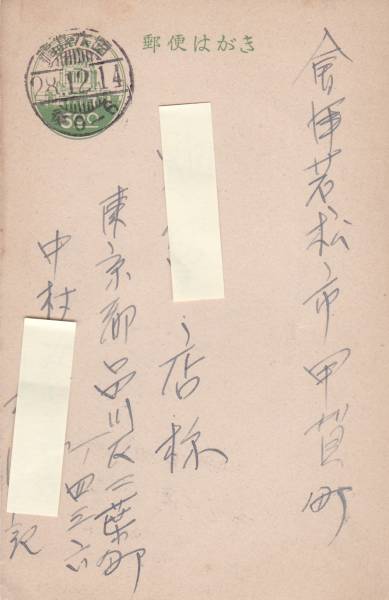 郵便はがき
28.12.14
會津若松市甲賀町
店様
東京都品川区二葉町
四三六
中村